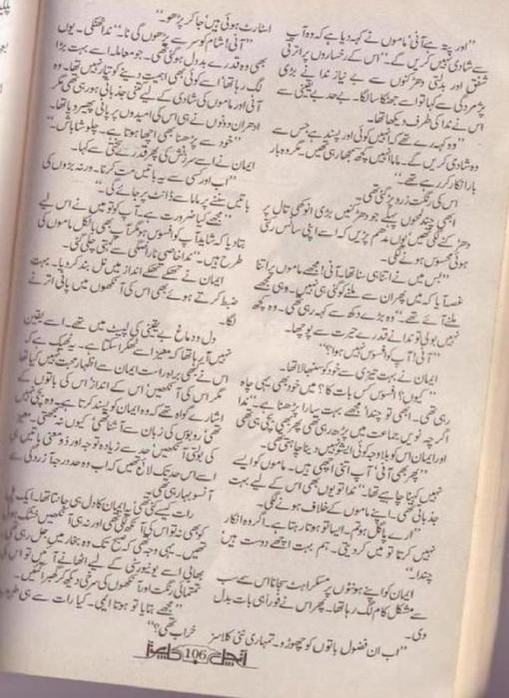 "اور پتہ ہے آنی! ماموں نے کہہ دیا ہے کہ وہ آپ
سے شادی نہیں کریں گے۔" اس کے رخساروں پر اترتی
شفق اور بدلتی دھڑکنوں سے بے نیاز ندا نے بڑی
پژمردگی سے کہا تو اسے جھٹکا سا لگا۔ بے حد بے یقینی سے
اس نے ندا کی طرف دیکھا تھا۔
"وہ کہہ رہے تھے کہ انہیں کوئی اور پسند ہے جس سے
وہ شادی کریں گے۔ ماما انہیں کچھ سمجھا رہی تھیں۔ مگر وہ بار
بار انکار کر رہے تھے۔"
اس کی رنگت زرد پڑ گئی تھی۔
ابھی چند لمحوں پہلے جو دھڑکنیں بڑی انوکھی تال پر
دھڑکنے لگی تھیں یوں مدھم پڑیں کہ اسے اپنی سانس رکتی
ہوئی محسوس ہونے لگی۔
"بس میں نے اتنا ہی سنا تھا۔ آنی! مجھے ماموں پر اتنا
غصہ آیا کہ میں پھر ان سے ملنے کو گئی ہی نہیں۔ وہی مجھے
ملنے آئے تھے۔" وہ بڑے دکھ سے کہہ رہی تھی۔ وہ کچھ
نہیں بولی تو ندا نے قدرے حیرت سے پوچھا۔
"آنی! آپ کو افسوس نہیں ہوا؟"
ایمان نے بہت تیزی سے خود کو سنبھالا تھا۔
"کیوں؟ افسوس کس بات کا؟ میں خود بھی یہی چاہ
رہی تھی۔ ابھی تو چندا مجھے بہت سارا پڑھنا ہے۔" ندا
اگرچہ نویں جماعت میں پڑھ رہی تھی پھر بھی بچی ہی تھی
اور ایمان اس کو بلاوجہ کوئی ٹینشن نہیں دینا چاہتی تھی۔
"پھر بھی آنی! آپ اتنی اچھی ہیں۔ ماموں کو ایسے
نہیں کہنا چاہیے تھا۔" ندا تو یوں بھی اس کے لیے بہت
جذباتی تھی۔ اپنے ماموں کے خلاف ہونے لگی۔
"ارے پاگل ہو تم۔ ایسا تو ہوتا رہتا ہے۔ اگر وہ انکار
نہیں کرتا تو میں کر دیتی۔ ہم بہت اچھے دوست ہیں
چندا۔"
ایمان کو اپنے ہونٹوں پر مسکراہٹ سجانا اس سب
سے مشکل کام لگ رہا تھا۔ پھر اس نے فوراً ہی بات بدل
دی۔
"اب ان فضول باتوں کو چھوڑو۔ تمہاری نئی کلاسز
اسٹارٹ ہوئی ہیں جا کر پڑھو۔"
"آنی! شام کو سر سے پڑھوں گی نا۔" ندا ٹھنکی۔ یوں
بھی وہ قدرے بد دل ہو گئی تھی۔ جو معاملہ اسے بہت بڑا
لگ رہا تھا اسے کوئی بھی اہمیت دینے کو تیار نہیں تھا۔ وہ
آنی اور ماموں کی شادی کے لیے جتنی جذباتی ہو رہی تھی مگر
ادھر ان دونوں نے ہی اس کی امیدوں پر پانی پھیر دیا تھا۔
"خود سے پڑھنا بھی اچھا ہوتا ہے۔ چلو شاباش۔"
ایمان نے اسے سرزنش کی پھر قدرے سختی سے کہا۔
"اب اور کسی سے یہ باتیں مت کرنا۔ ورنہ بڑوں کی
باتیں سننے پر ماما سے ڈانٹ پڑ جائے گی۔"
"مجھے کیا ضرورت ہے۔ آپ کو تو میں نے اس لیے
بتا دیا کہ شاید آپ کو افسوس ہو مگر آپ بھی بالکل ماموں کی
طرح ہیں۔" ندا خاصی ناراضگی سے کہتی چلی گئی۔
ایمان نے تھکے تھکے انداز میں نل بند کر دیا۔ بہت
ضبط کرتے ہوئے بھی اس کی آنکھوں میں پانی اترنے
لگا۔
دل و دماغ بے یقینی کی لپیٹ میں تھے۔ اسے یقین
نہیں آ رہا تھا کہ معیز اسے ٹھکرا سکتا ہے۔ یہ ٹھیک ہے کہ
اس نے کبھی براہ راست ایمان سے اظہار محبت نہیں کیا تھا
مگر اس کی آنکھیں، اس کے انداز، اس کی باتوں کے
اشارے گواہ تھے کہ وہ ایمان کو پسند کرتا ہے۔ وہ بچی نہیں
تھی کی زبان سے آشنا تھی کیوں نہ سمجھتی۔ معیز
کی بولتی آنکھیں حد سے زیادہ توجہ اور ذو معنی باتیں ہی
اسے اس حد تک لائی تھیں کہ اب وہ حد درجہ آزردگی سے
آنسو بہا رہی تھی۔
رات کیسے کٹی تھی یہ ایمان کا دل ہی جانتا تھا۔ ایک پل
کو بھی نہ تو اس کی آنکھ لگی تھی اور نہ ہی آنکھیں خشک ہوئی
تھیں۔ یہی وجہ تھی کہ صبح تک وہ بخار میں جل رہی تھی۔
بھابی اسے یونیورسٹی کے لیے اٹھانے آئیں تو اس کی
تمتماتی رنگت اور آنکھوں کی سرخی دیکھ کر گھبرا گئیں۔
"مجھے بتایا تو ہوتا ایمی۔ کیا رات سے ہی طبیعت
خراب تھی؟"
آنچل 106